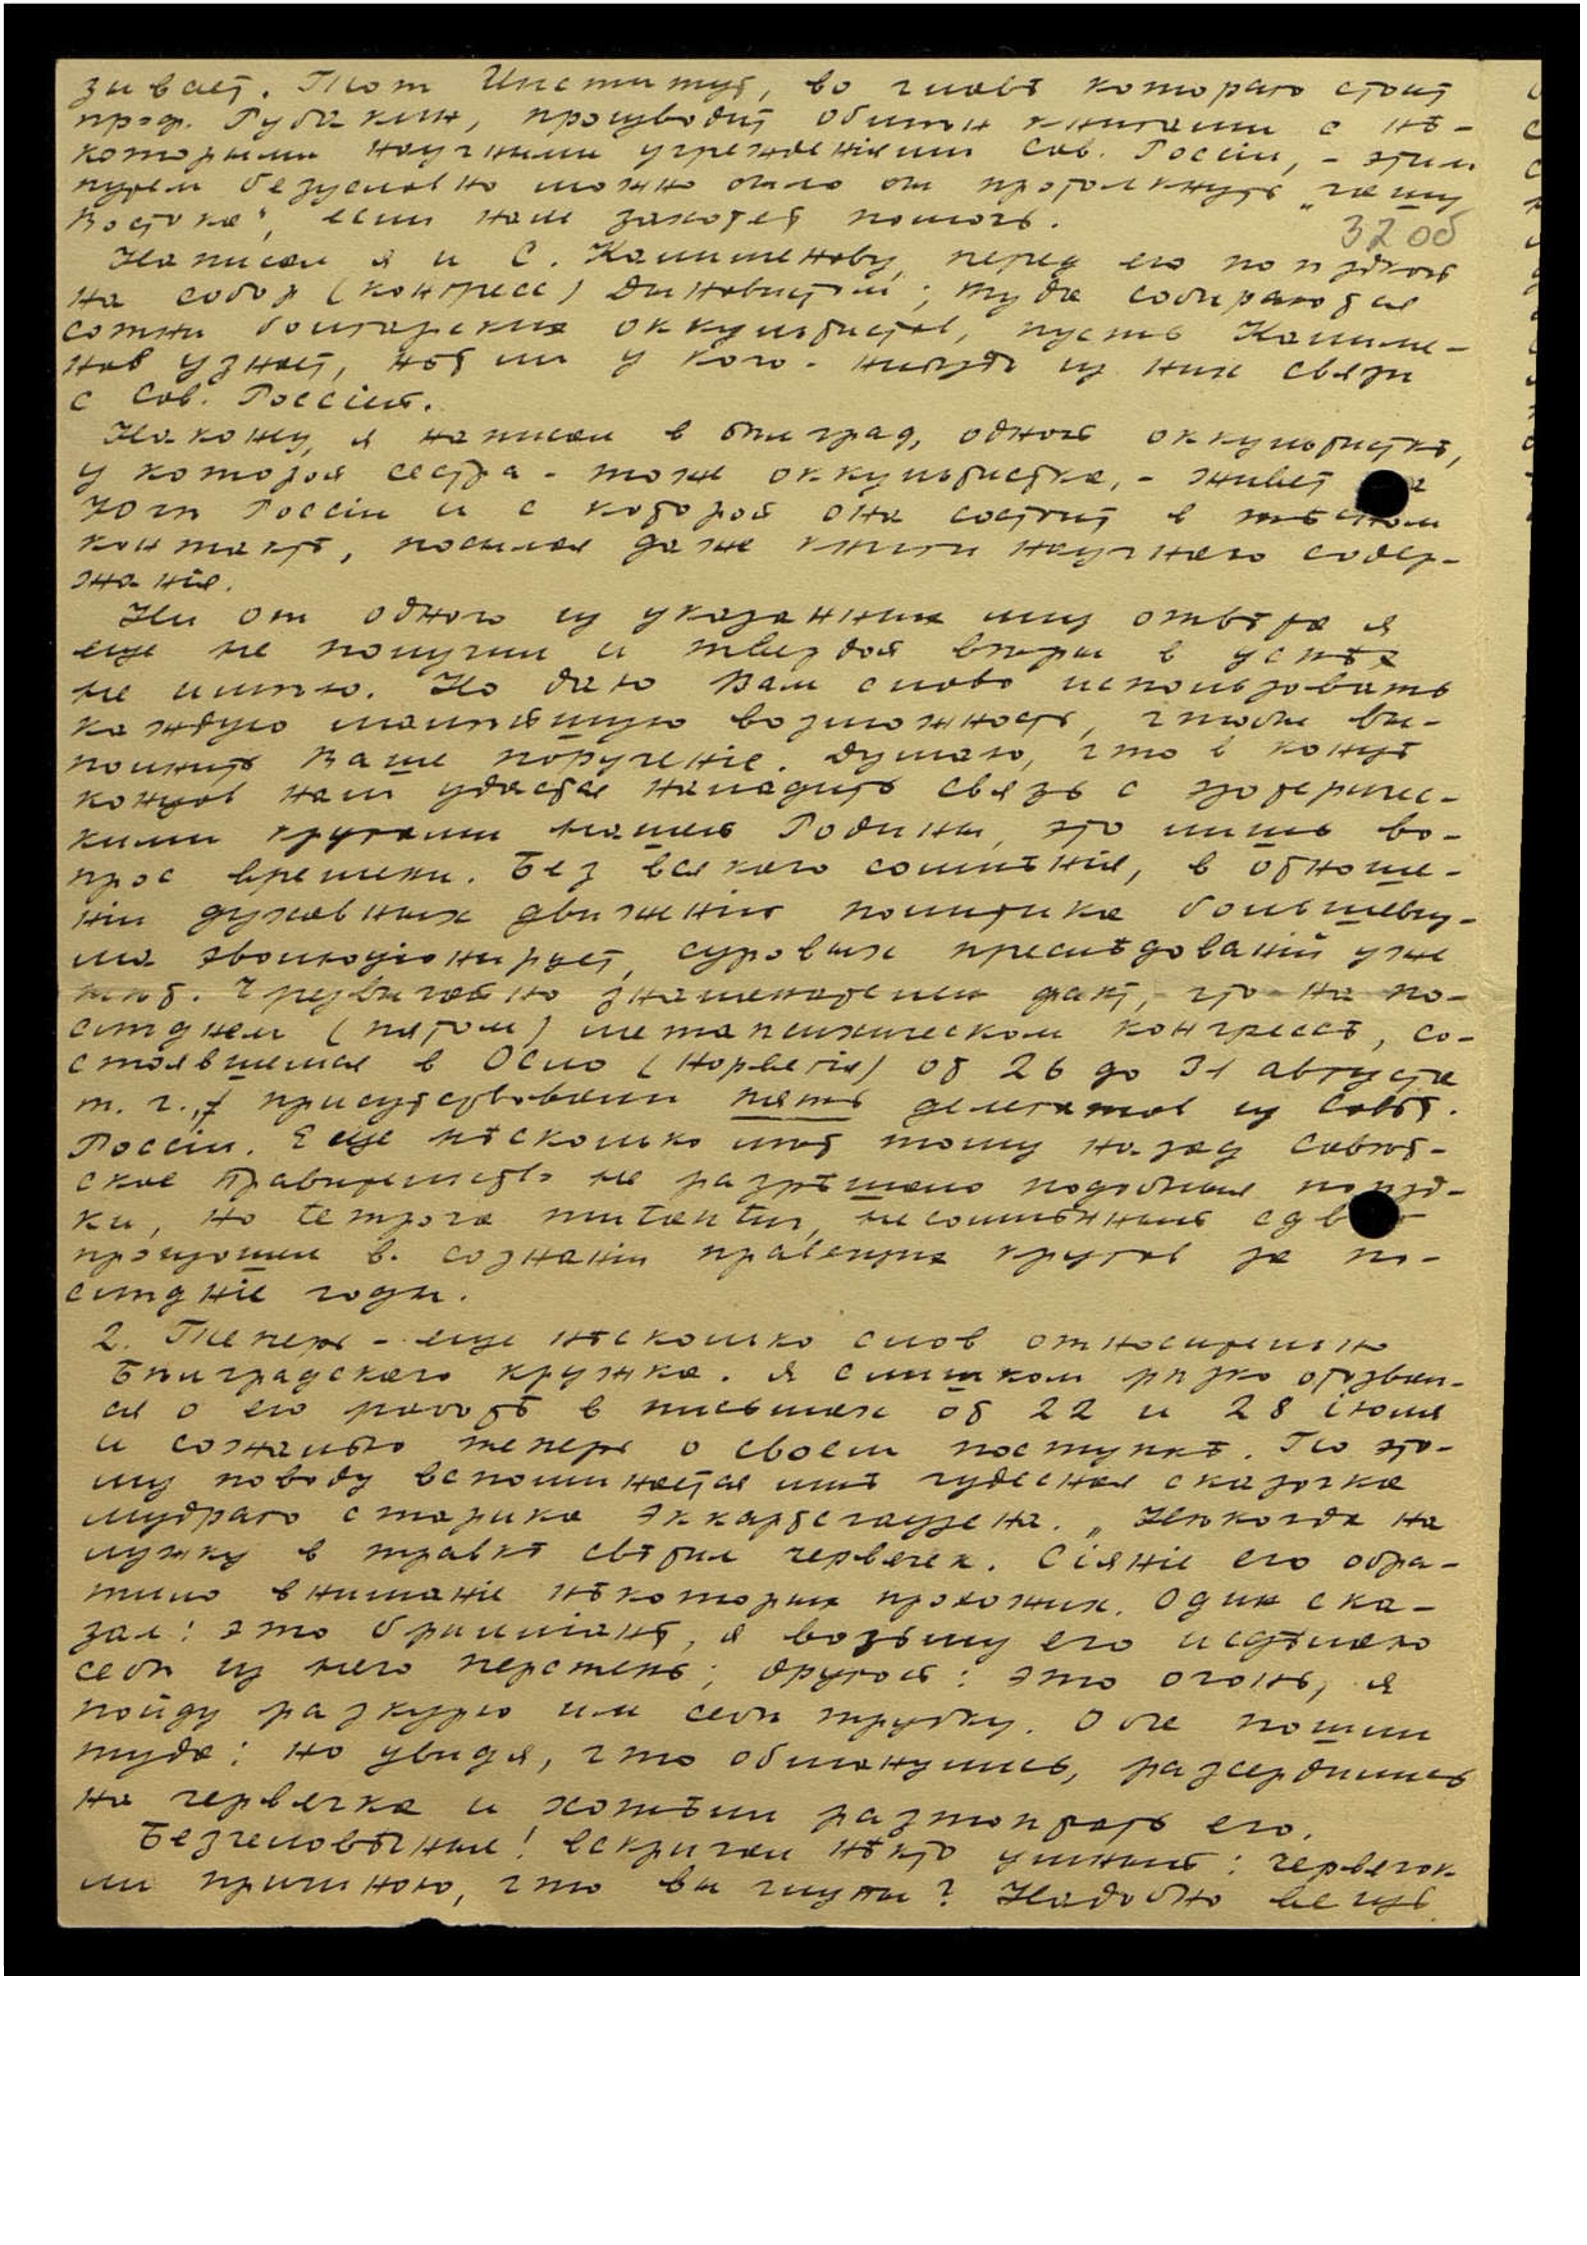 зывает. Тот Институт, во главѣ котораго стоит
проф. Рубакин, производит обмѣн книгами с нѣ-
которыми научными учрежденіями Сов. Россіи, - этим
путем безусловно можно было бы протолкнуть "Чашу
Востока", если нам захотят помочь.
32 об
Написал я и С. Калименову, перед его поѣздкой
на собор (конгресс) Дыновистов; туда собираются
сотни болгарских оккультистов, пусть Калиме-
нов узнает, нѣт ли у кого-нибудь из них связи
с Сов. Россіей.
Наконец, я написал в Бѣлград, одной оккультисткѣ,
у которой сестра - тоже оккультистка, - живет на
Югѣ Россіи и с которой она состоит в тѣсном
контактѣ, посылая даже книги научнаго содер-
жанія.
Ни от одного из указанных лиц отвѣта я
еще не получил и твердой вѣры в успѣх
не имѣю. Но даю Вам слово использовать
каждую малѣйшую возможность, чтобы вы-
полнить Ваше порученіе. Думаю, что в концѣ
концов нам удастся наладить связь с эзотеричес-
кими кругами нашей Родины, это лишь во-
прос времени. Без всякаго сомнѣнія, в отноше-
ніи духовных движеній политика большевиз-
ма эволюціонирует, суровых преслѣдованій уже
нѣт. Чрезвычайно знаменателен факт, что на по-
слѣднем (пятом) метапсихическом конгрессѣ, со-
стоявшемся в Осло (Норвегія) от 26 до 31 августа
т. г., присутствовали пять делегатов из Совѣт.
Россіи. Еще нѣсколько лѣт тому назад Совѣт-
ское Правительство не разрѣшало подобныя поѣзд-
ки, но tempora mutantur, несомнѣнный сдвиг
произошел в сознаніи правящих кругов за по-
слѣдніе годы.
2. Теперь - еще нѣсколько слов относительно
Бѣлградскаго кружка. Я слишком рѣзко отозвал-
ся о его работѣ в письмах от 22 и 28 іюля
и сожалѣю теперь о своем поступкѣ. По это-
му поводу вспоминается мнѣ чудесная сказочка
мудраго старика Эккартсгаузена. "Нѣкогда на
лужку в травкѣ свѣтил червячек. Сіяніе его обра-
тило вниманіе нѣкоторых прохожих. Один ска-
зал: это брилліант, я возьму его и сдѣлаю
себѣ из него перстень; другой: это огонь, я
пойду раскурю им себѣ трубку. Обе пошли
туда; но увидя, что обманулись, разсердились
на червячка и хотѣли растоптать его.
Безчеловѣчные! вскричал нѣкто умный: червячок
ли причиною, что вы глупы? Надобно